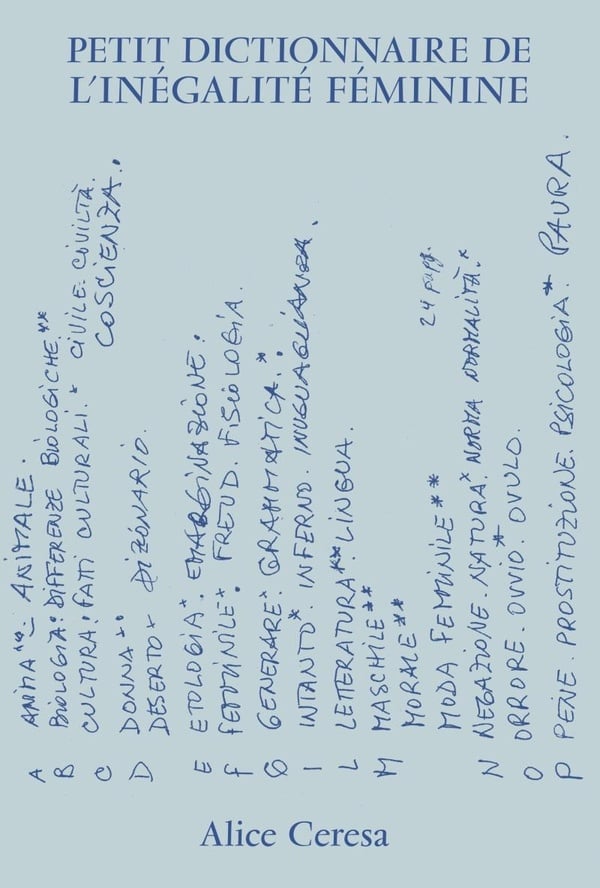 PETIT DICTIONNAIRE DE
L'INÉGALITÉ FÉMININE
A ANIMA**. ANIMALE.
B BIOLOGIA: DIFFERENZE BIOLOGICHE**
C CULTURA: FATTI CULTURALI.* CIVILE. CIVILTÀ.
COSCIENZA.
D DONNA**
DESERTO* DIZIONARIO.
E ETOLOGIA*. EMARGINAZIONE.
F FEMMINILE*. FREUD. FISIOLOGIA.
G GENERARE* GRAMMATICA.*
I INTANTO* INFERNO. INUGUAGLIANZA.
L LETTERATURA** LINGUA.
M MASCHILE**
MORALE**
24 pagg.
MODA FEMMINILE**
N NEGAZIONE. NATURA* NORMA NORMALITÀ.*
O ORRORE. OVVIO*. OVULO.
P PENE. PROSTITUZIONE. PSICOLOGIA*. PAURA.
Alice Ceresa